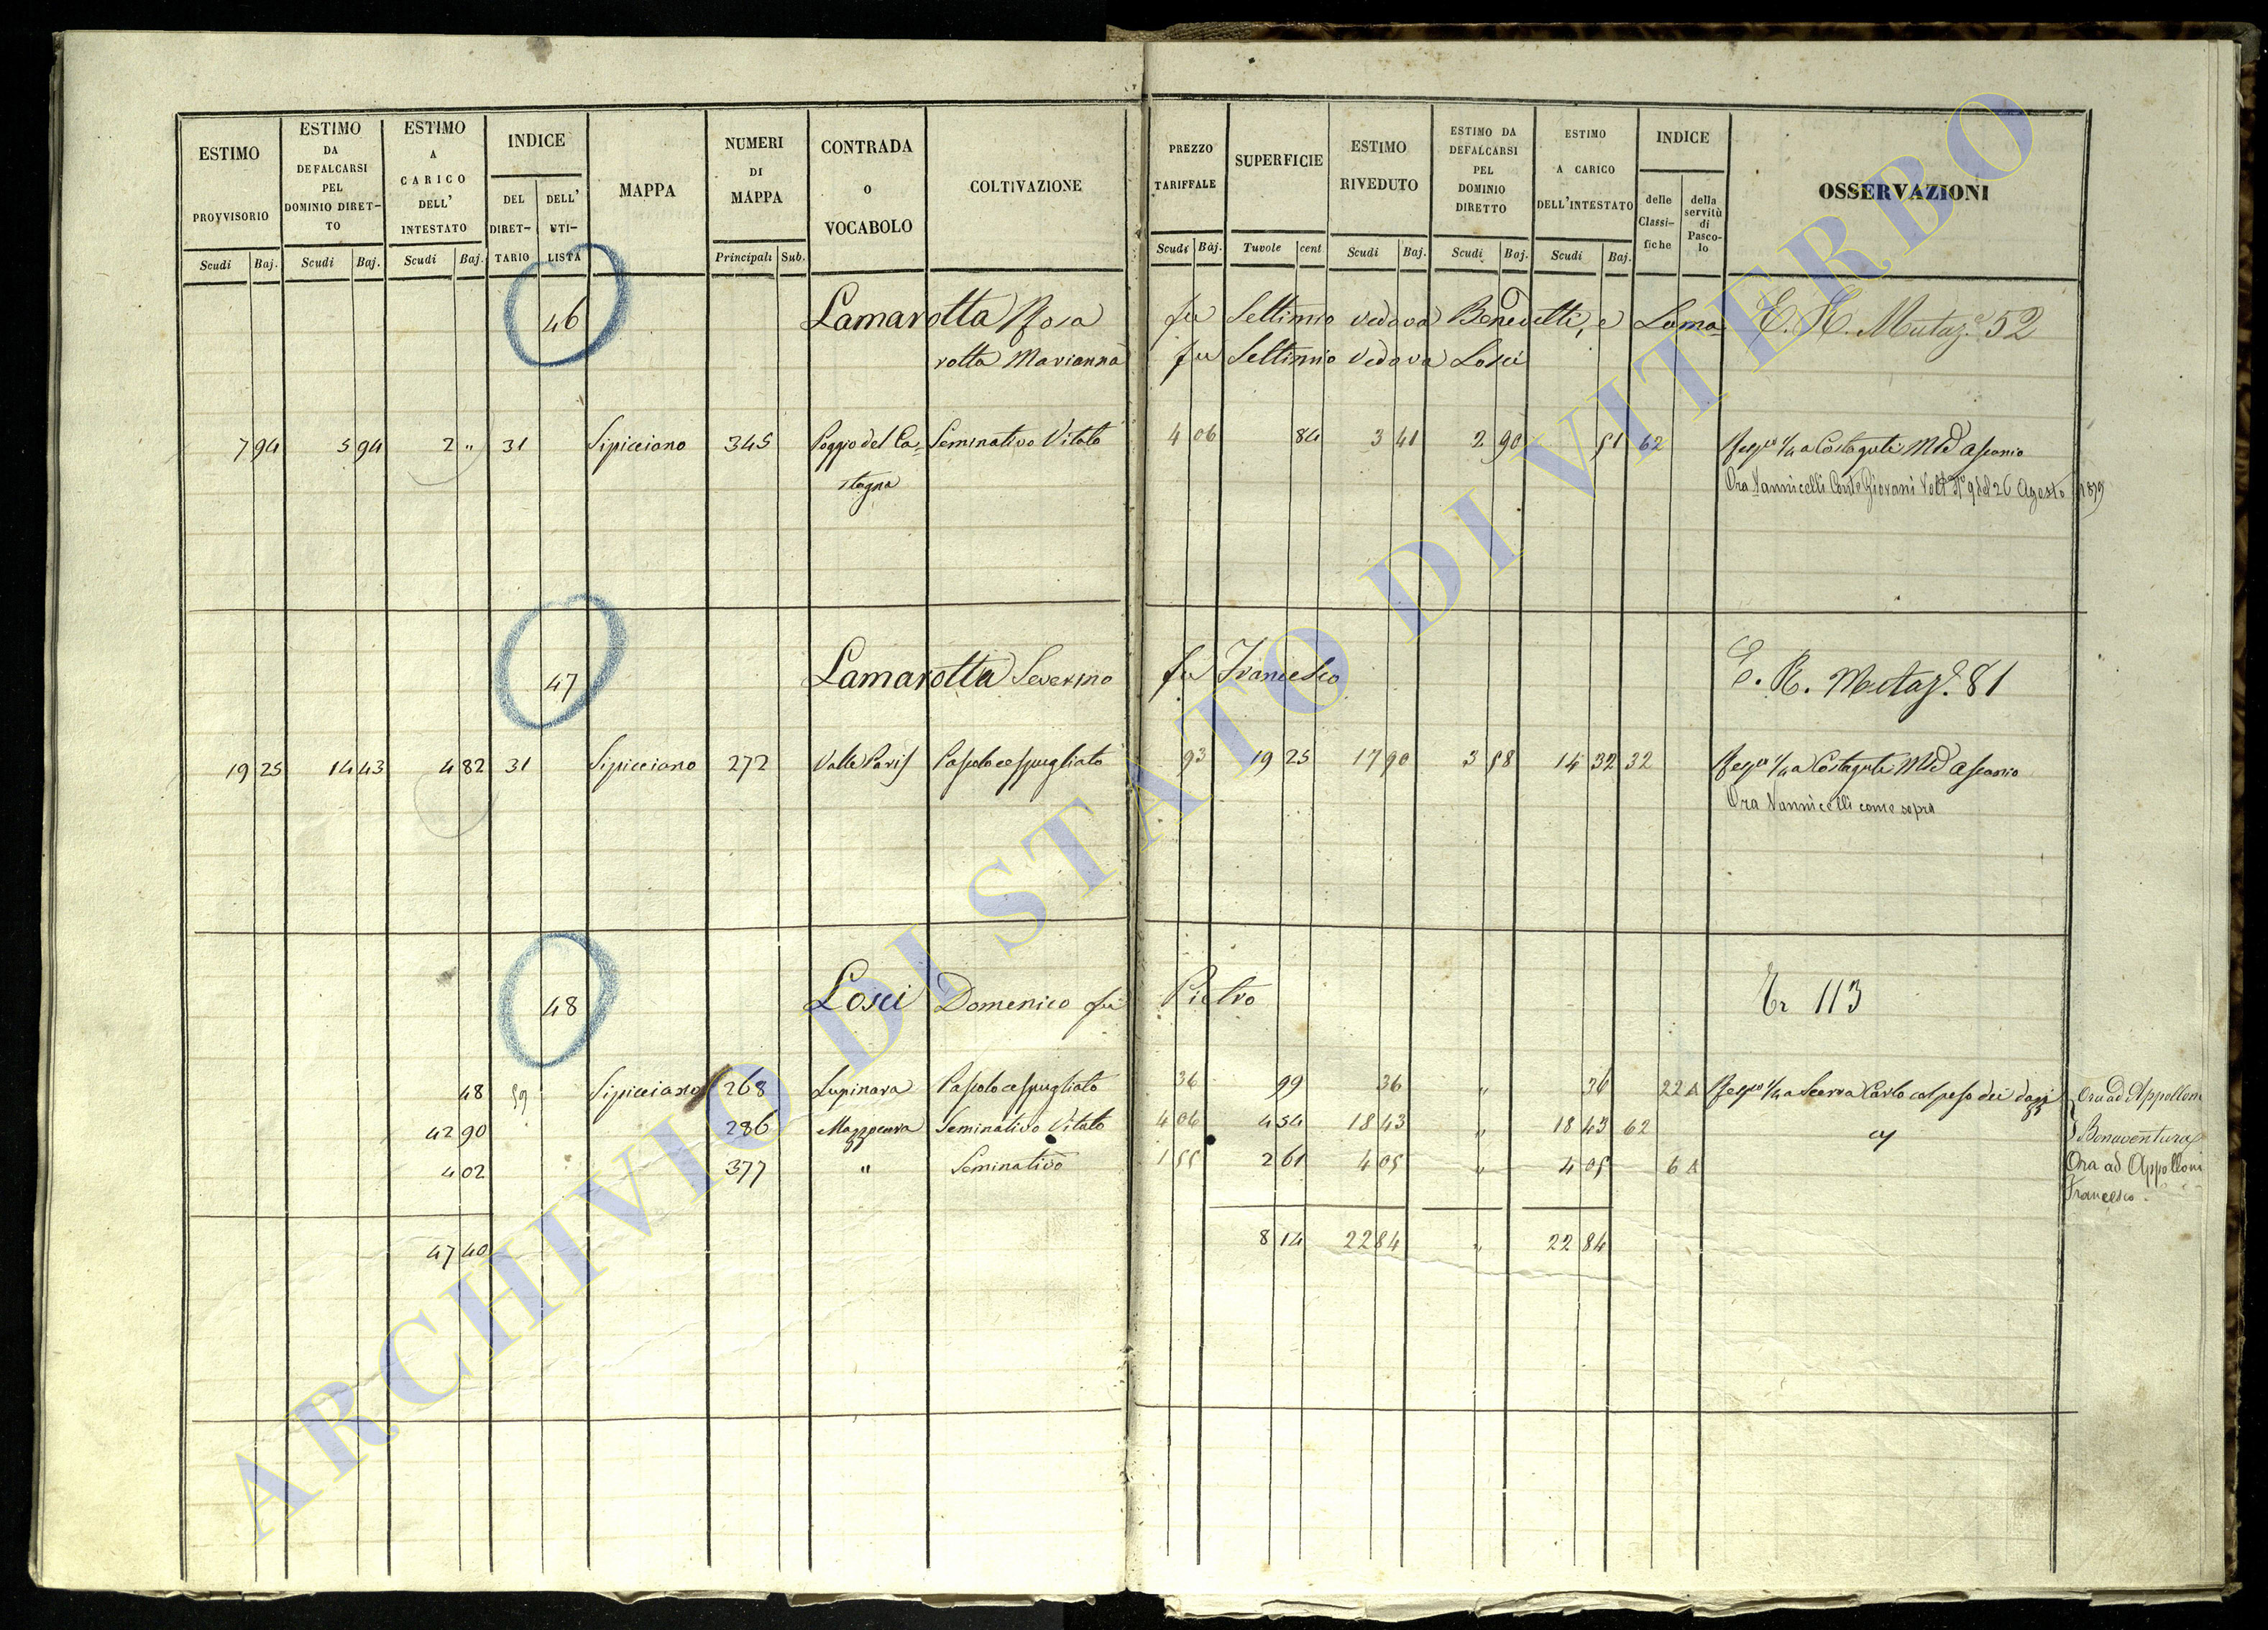 ESTIMO PROVVISORIO Scudi Baj.
ESTIMO DA DEFALCARSI PEL DOMINIO DIRET-TO Scudi Baj.
ESTIMO A CARICO DELL' INTESTATO Scudi Baj.
INDICE DEL DIRET-TARIO DELL' UTI-LISTA
MAPPA
NUMERI DI MAPPA Principali Sub.
CONTRADA O VOCABOLO
COLTIVAZIONE
PREZZO TARIFFALE Scudi Baj.
SUPERFICIE Tuvole cent
ESTIMO RIVEDUTO Scudi Baj.
ESTIMO DA DEFALCARSI PEL DOMINIO DIRETTO Scudi Baj.
ESTIMO A CARICO DELL'INTESTATO Scudi Baj.
INDICE delle Classi-fiche della servitù di Pasco-lo
OSSERVAZIONI
46 Lamarotta Rosa fu Settimio vedova Benedetti, e Lama E. R. Mutaz.e 52
rotta Marianna fu Settimio vedova Losci
7 94 5 94 2 " 31 Sipicciano 345 Poggio del Ca= Seminativo Vitato 4 06 84 3 41 2 90 51 62 1/4 a Costaguti Ascanio
stagna Ora Vannicelli Conte Giovani Volt.a N° 9 del 26 Agosto 1879
47 Lamarotta Severino fu Francesco E. R. Mutaz.e 81
19 25 14 43 4 82 31 Sipicciano 272 Valle Paris Pascolo cespugliato 93 19 25 17 90 3 58 14 32 32 1/4 a Costaguti Ascanio
Ora Vannicelli come sopra
48 Losci Domenico fu Pietro Er 113
48 59 Sipicciano 268 Lupinara Pascolo cespugliato 36 99 36 " 36 22 A 1/4 a Scerra Carlo col peso dei dazj Ora ad Appolloni
42 90 286 Mazzocura Seminativo Vitato 4 06 4 54 18 43 " 18 43 62 Bonaventura
4 02 377 " Seminativo 1 55 2 61 4 05 " 4 05 6 A Ora ad Appolloni
Francesco.
47 40 8 14 22 84 " 22 84
ARCHIVIO DI STATO DI VITERBO